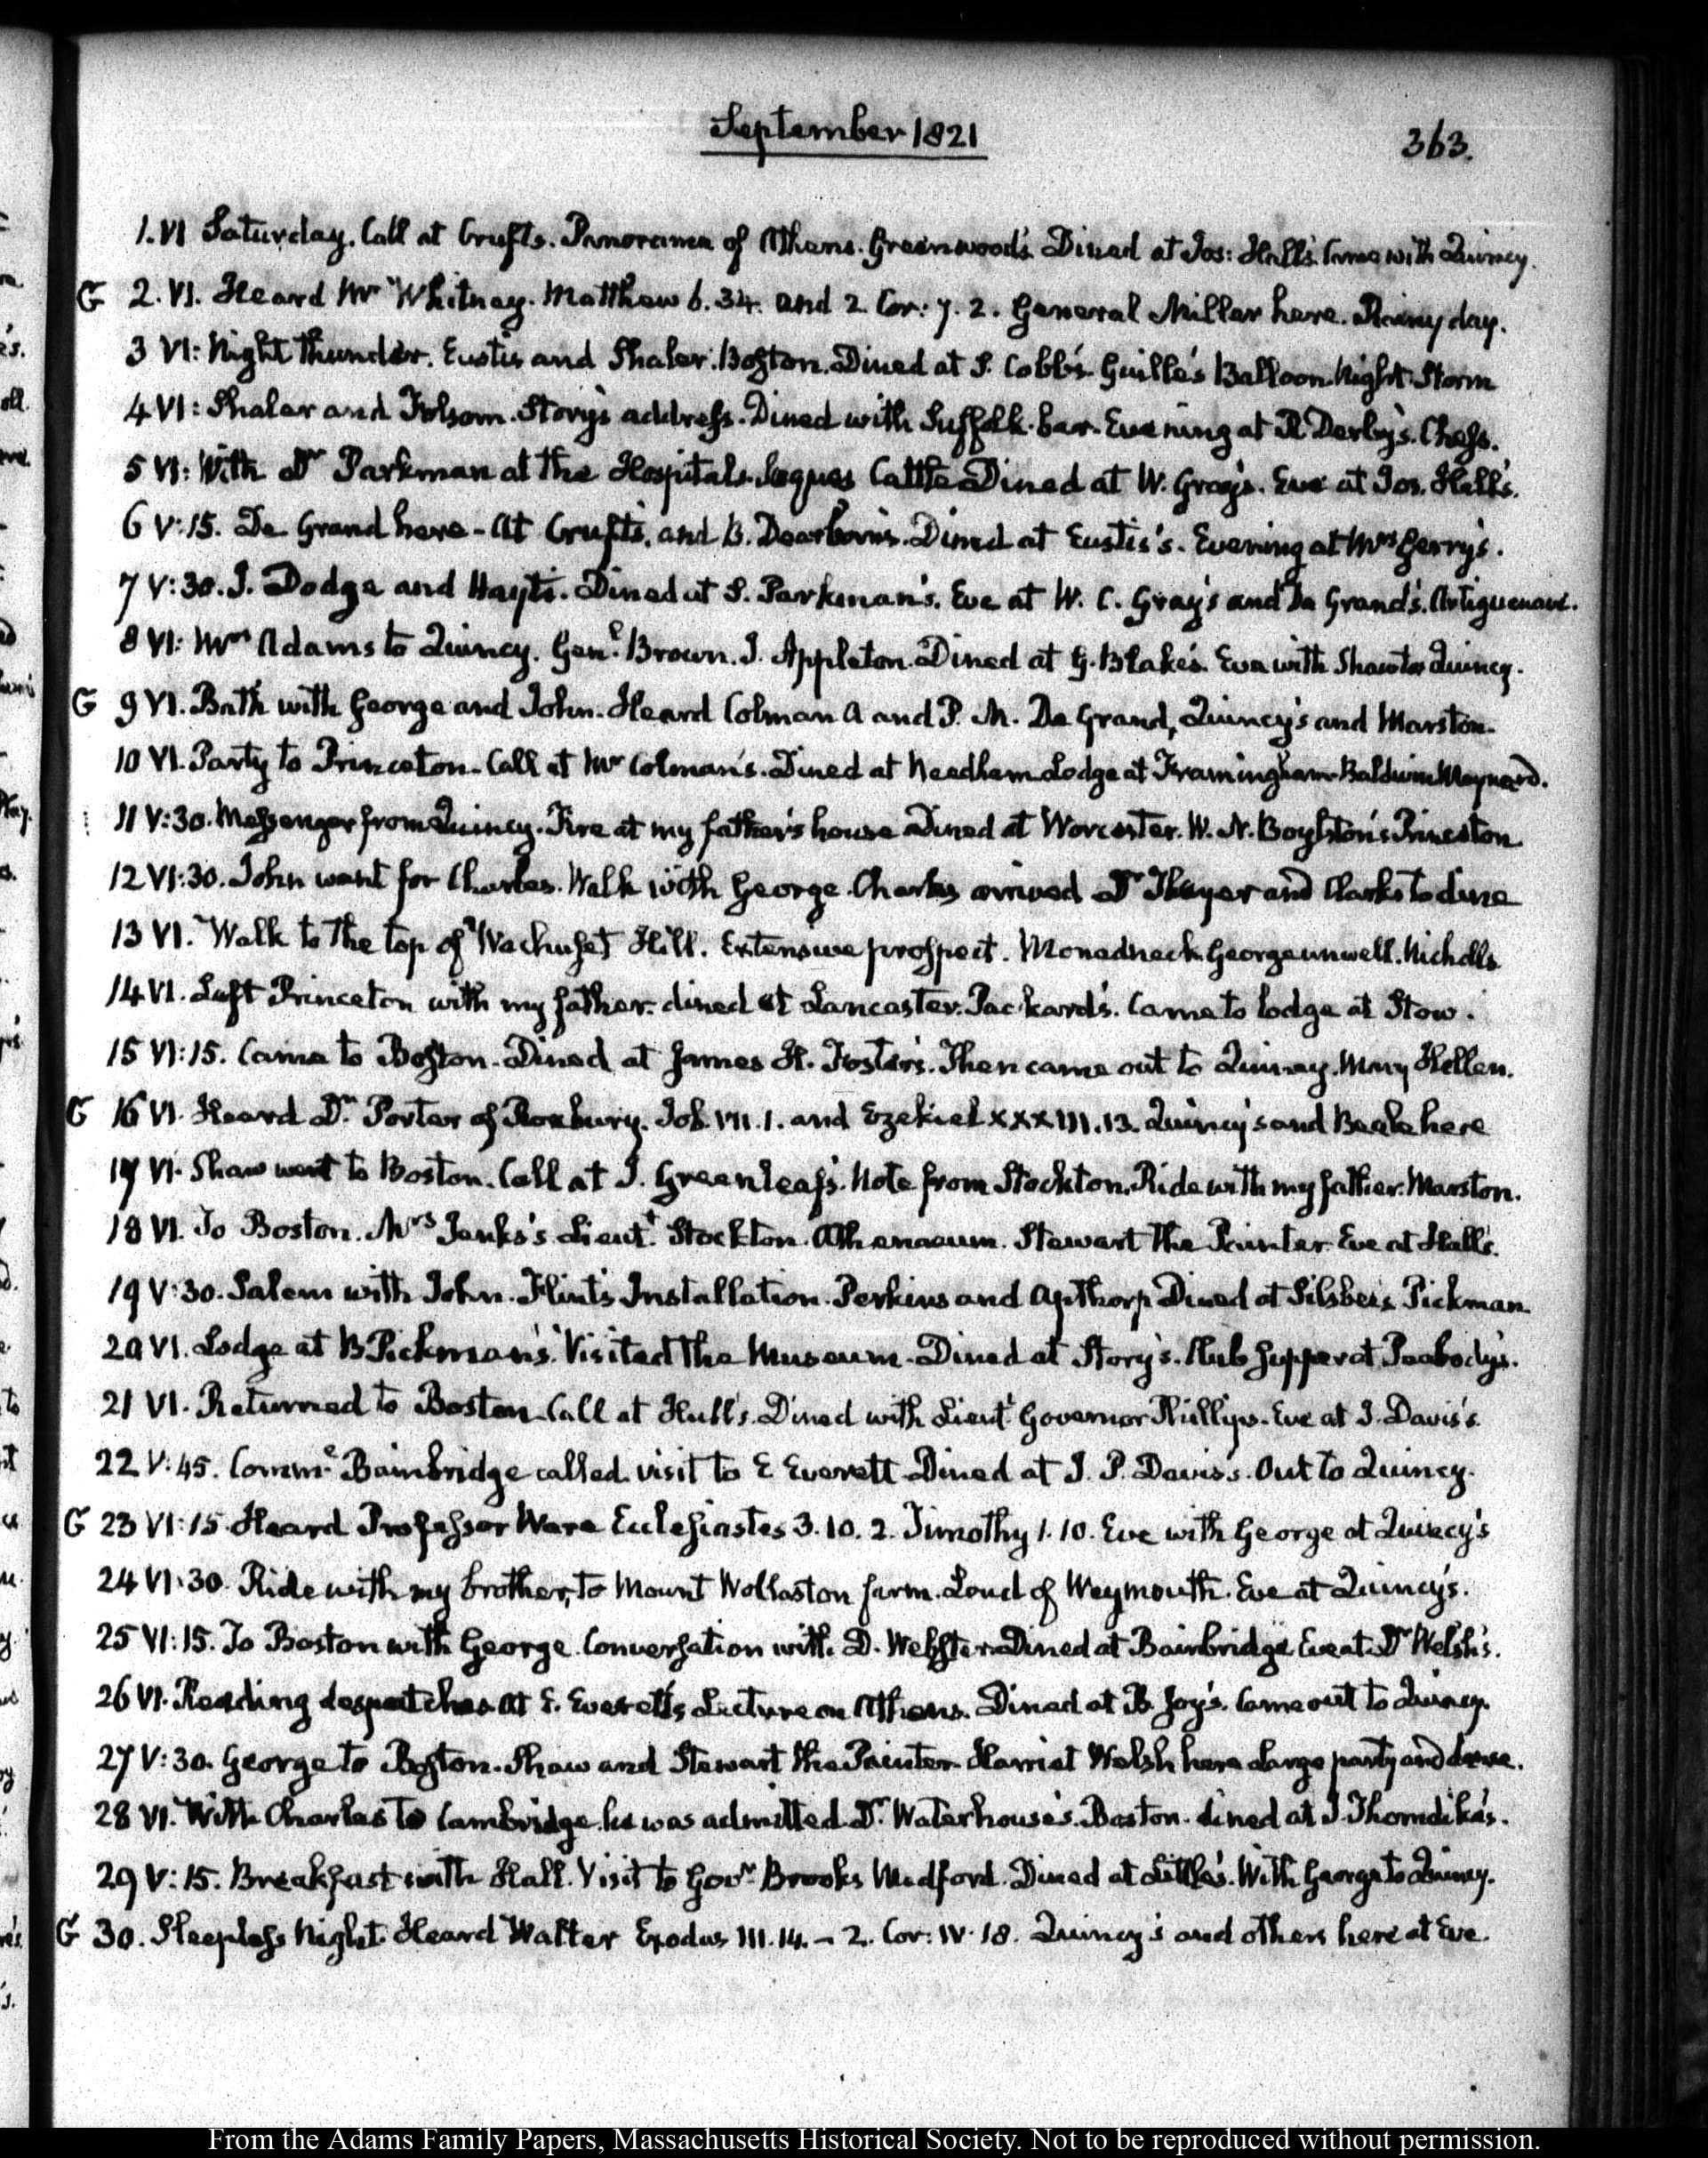 September 1821
363.
1. VI Saturday. Call at Crufts. Panorama of Athens. Greenwood's. Dined at Jos: Hall's. Came with Quincy.
G 2. VI. Heard Mr Whitney. Matthew 6. 34. and 2 Cor: 7. 2. General Miller here. Rainy day.
3 VI: Night Thunder. Eustis and Shaler. Boston. Dined at S. Cobb's. Guille's Balloon. Night Storm
4 VI: Shaler and Folsom. Story's address. Dined with Suffolk bar. Evening at R Derby's. Chess.
5 VI: With Dr Parkman at the Hospitals. Cattle Dined at W. Gray's. Eve at Jos. Hall's.
6 V:15. De Grand here - At Crufts, and B. Dearborn's. Dined at Eustis's. Evening at Mrs Gerry's.
7 V:30. J. Dodge and Hayti. Dined at S. Parkman's. Eve at W. C. Gray's and De Grand's. Artiguenave.
8 VI: Mrs Adams to Quincy. Genl. Brown. J. Appleton. Dined at G. Blake's. Eve with Shaw to Quincy.
G 9 VI. Bath with George and John. Heard Colman A and P. M. De Grand, Quincy's and Marston.
10 VI. Party to Princeton. Call at Mr Colman's. Dined at Needham. Lodge at Framingham. Baldwin Maynard.
11 V:30. Messenger from Quincy. Fire at my father's house Dined at Worcester. W. N. Boylston's Princeton.
12 VI:30. John went for Charles. Walk with George. Charles arrived Dr Thayer and Clarks to dine
13 VI. Walk to the top of Wachuset Hill. Extensive prospect. Monadneck. George unwell. Nicholls
14 VI. Left Princeton with my father. dined at Lancaster. Packard's. Came to lodge at Stow.
15 VI:15. Came to Boston. Dined at James H. Foster's. Then came out to Quincy. Mary Hellen.
G 16 VI. Heard Dr. Porter of Roxbury. Job. VII. 1. and Ezekiel XXXIII. 13. Quincy's and Beale here
17 VI. Shaw went to Boston. Call at J. Greenleaf's. Note from Stockton. Ride with my father. Marston.
18 VI. To Boston. Mrs Jenks's Lieutt. Stockton. Athenaeum. Stewart the Painter. Eve at Hall's.
19 V:30. Salem with John. Flint's Installation. Perkins and Apthorp Dined at Silsbee's Pickman
20 VI. Lodge at B Pickman's. Visited the Museum. Dined at Story's. Club Supper at Peabody's.
21 VI. Returned to Boston. Call at Hull's. Dined with Lieutt Governor Phillips. Eve at J. Davis's.
22 V:45. Comme Bainbridge called. visit to E Everett Dined at J. P. Davis's. Out to Quincy.
G 23 VI:15 Heard Professor Ware Ecclesiastes 3. 10. 2. Timothy 1. 10. Eve with George at Quincy's
24 VI:30. Ride with my brother, to Mount Wollaston farm. Loud of Weymouth. Eve at Quincy's.
25 VI:15. To Boston with George. Conversation with D. Webster. Dined at Bainbridge Eve at Dr Welsh's.
26 VI. Reading despatches. At E. Everett's Lecture on Athens. Dined at B. Joy's. Came out to Quincy.
27 V:30. George to Boston. Shaw and Stewart the Painter. Harriet Welsh here. Large party and dance.
28 VI. With Charles to Cambridge. he was admitted. Dr. Waterhouse's. Boston. dined at J. Thorndike's.
29 V:15. Breakfast with Hall. Visit to Govr. Brooks Medford. Dined at Little's. With George to Quincy.
G 30. Sleepless Night. Heard Walter Exodus III. 14. - 2. Cor: IV. 18. Quincy's and others here at Eve.
From the Adams Family Papers, Massachusetts Historical Society. Not to be reproduced without permission.